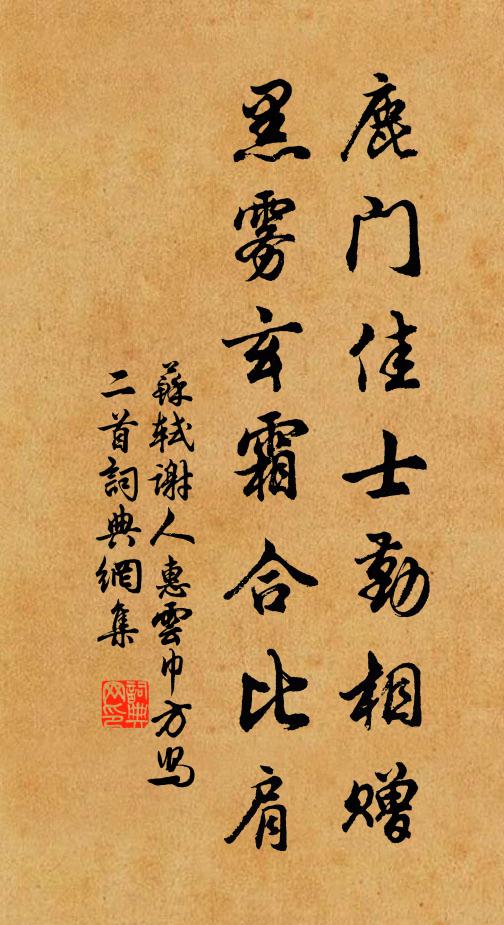 鹿门佳士勤相赠
黑雾玄霜合比肩
蘇軾谢人惠雲巾方舄
二首詞典網集
詞典网印